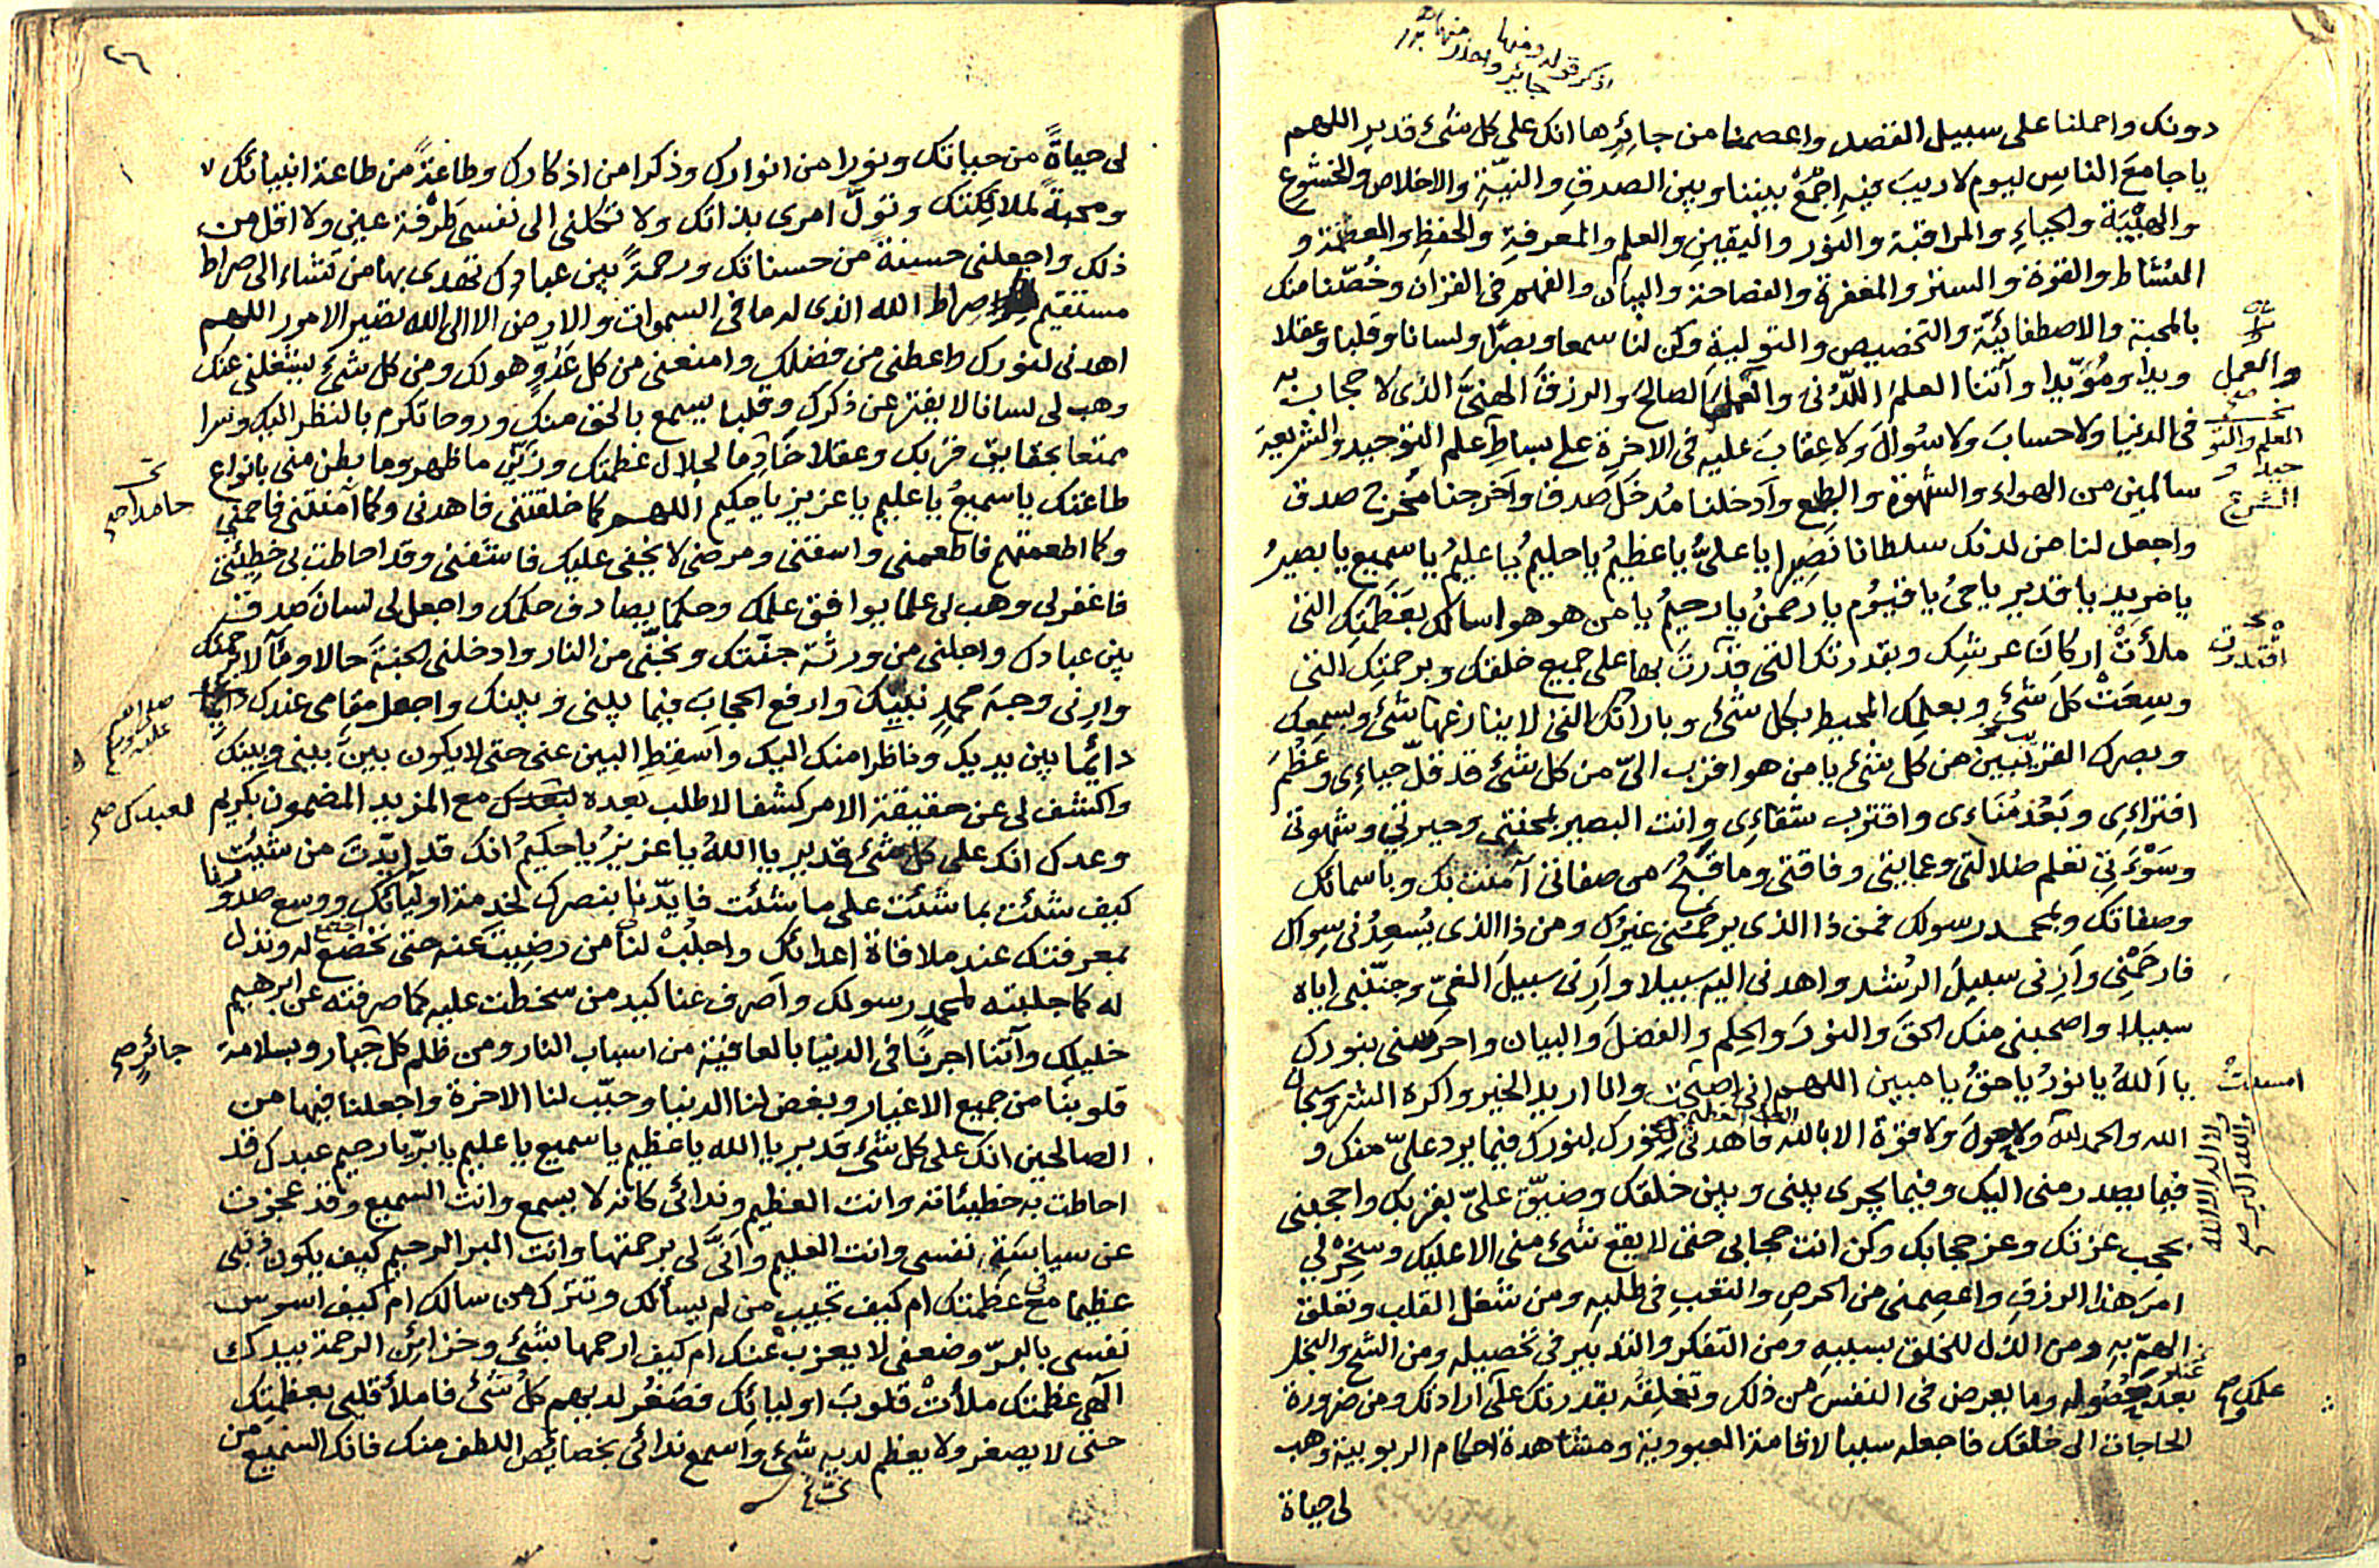 اذكر قوله ومنها
جائر واحذر منها
دونك واحملنا على سبيل القصد واعصمنا من جائرها انك على كل شئ قدير اللهم
يا جامع الناس ليوم لا ريب فيه اجمع بيننا وبين الصدق والنية والاخلاص والخشوع
والهيبة والحياء والمراقبة والنور واليقين والعلم والمعرفة والحفظ والعصمة و
النشاط والقوة والستر والمغفرة والفصاحة والبيان والفهم فى القرآن وخصنا منك
بالمحبة والاصطفائية والتخصيص والتولية وكن لنا سمعا وبصرا ولسانا وقلبا وعقلا
ويدا ومؤيدا وآتنا العلم اللدنى والعمل الصالح والرزق الهنى الذى لا حجاب به
والعمل
فى الدنيا ولا حساب ولا سؤال ولا عقاب عليه فى الاخرة على بساط علم التوحيد والشريعة
العلم والتو
حيد و
الشرع
سالمين من الهواء والشهوة والطبع وادخلنا مدخل صدق واخرجنا مخرج صدق
واجعل لنا من لدنك سلطانا نصيرا يا على يا عظيم يا حليم يا عليم يا سميع يا بصير
يا مريد يا قدير يا حى يا قيوم يا رحمن يا رحيم يا من هو هو اسالك بعظمتك التى
ملأت اركان عرشك وبقدرتك التى قدرت بها على جميع خلقك وبرحمتك التى
اقتدرت
وسعت كل شئ وبعلمك المحيط بكل شئ وبارادتك التى لا ينازعها شئ وبسمعك
وبصرك القريبين من كل شئ يا من هو اقرب الى من كل شئ قد قل حياءى وعظم
افتراءى وبعد مناءى واقترب شقاءى وانت البصير بمحنتى وحيرتى وشهوتى
وسوءتى تعلم ضلالتى وعمايتى وفاقتى وما قبح من صفاتى آمنت بك وباسمائك
وصفاتك وبمحمد رسولك فمن ذا الذى يرحمنى غيرك ومن ذا الذى يسعدنى سواك
فارحمنى وارنى سبيل الرشد واهدنى اليه سبيلا وارنى سبيل الغى وجنبنى اياه
سبيلا واصحبنى منك الحق والنور والحكم والفضل والبيان واحرسنى بنورك
يا الله يا نور يا حق يا مبين اللهم انى اصبحت وانا اريد الخير واكره الشر وسبحان
امسيت
الله والحمد لله ولا حول ولا قوة الا بالله فاهدنى لنورك بنورك فيما يرد على منك و
العلى العظيم
ولا اله الا الله
والله اكبر صح
فيما يصدر منى اليك وفيما يجرى بينى وبين خلقك وضيق على بقربك واحجبنى
بحجب عزتك وعز حجابك وكن انت حجابى حتى لا يقع شئ منى الا عليك وسخر لى
امر هذا الرزق واعصمنى من الحرص والتعب فى طلبه ومن شغل القلب وتعلق
الهم به ومن الذل للخلق بسببه ومن التفكر والتدبير فى تحصيله ومن الشح والبخل
بعد حصوله وما يعرض فى النفس من ذلك وتخلقه بقدرتك على ارادتك ومن ضرورة
علمك
الحاجات الى خلقك فاجعله سببا لاقامة العبودية ومشاهدة احكام الربوبية وهب
لى حياة
٢٦
لى حياة من حياتك ونورا من انوارك وذكرا من اذكارك وطاعة من طاعة انبيائك
ومحبة لملائكتك وتول امرى بذاتك ولا تكلنى الى نفسى طرفة عين ولا اقل من
ذلك واجعلنى حسنة من حسناتك ورحمة بين عبادك تهدى بها من تشاء الى صراط
مستقيم صراط الله الذى له ما فى السموات والارض الا الى الله تصير الامور اللهم
اهدنى لنورك واعطنى من فضلك وامنعنى من كل عدو هو لك ومن كل شئ يشغلنى عنك
وهب لى لسانا لا يفتر عن ذكرك وقلبا يسمع بالحق منك وروحا تكرم بالنظر اليك وسرا
ممتعا بحقايق قربك وعقلا خادما لجلال عظمتك وزين ما ظهر وما بطن منى بانواع
حامدا صح
طاعتك يا سميع يا عليم يا عزيز يا حكيم اللهم كما خلقتنى فاهدنى وكما امتنى فاحينى
وكما اطعمتهم فاطعمنى واسقنى ومرضى لا يخفى عليك فاشفنى وقد احاطت بى خطيئتى
فاغفر لى وهب لى علما يوافق علمك وحكما يصادف حكمك واجعل لى لسان صدق
بين عبادك واجعلنى من ورثة جنتك ونجنى من النار وادخلنى الجنة حالا ومآلا برحمتك
وارنى وجه محمد نبيك وارفع الحجاب فيما بينى وبينك واجعل مقامى عندك دائما
صلى الله
عليه وسلم
دائما بين يديك وناظرا منك اليك واسقط البين عنى حتى لا يكون بين بينى وبينك
واكشف لى عن حقيقة الامر كشفا لا طلب بعده لعبدك مع المزيد المضمون بكريم
لعبدك صح
وعدك انك على كل شئ قدير يا الله يا عزيز يا حكيم انك قد ايدت من شئت
كيف شئت بما شئت على ما شئت فايدنا بنصرك لخدمة اوليائك ووسع صدورنا
بمعرفتك عند ملاقاة اعدائك واجلب لنا من رضيت عنه حتى تخضع له ونذل
له كما جلبته لمحمد رسولك واصرف عنا كيد من سخطت عليه كما صرفته عن ابرهيم
خليلك وآتنا اجرنا فى الدنيا بالعافية من اسباب النار ومن ظلم كل جبار وبسلامة
جائر صح
قلوبنا من جميع الاغيار وبغض لنا الدنيا وحبب لنا الاخرة واجعلنا فيها من
الصالحين انك على كل شئ قدير يا الله يا عظيم يا سميع يا عليم يا بر يا رحيم عبدك قد
احاطت به خطيئاته وانت العظيم وندائى كانه لا يسمع وانت السميع وقد عجزت
عن سياسة نفسى وانت العليم وانى لى برحمتها وانت البر الرحيم كيف يكون ذنبى
عظيما مع عظمتك ام كيف تجيب من لم يسألك وتترك من سالك ام كيف اسوس
نفسى بالبر وضعفى لا يعزب عنك ام كيف ارحمها بشئ وخزائن الرحمة بيدك
الهى عظمتك ملأت قلوب اوليائك فصغر لديهم كل شئ فاملأ قلبى بعظمتك
حتى لا يصغر ولا يعظم لديه شئ واسمع ندائى بخصائص اللطف منك فانك السميع من